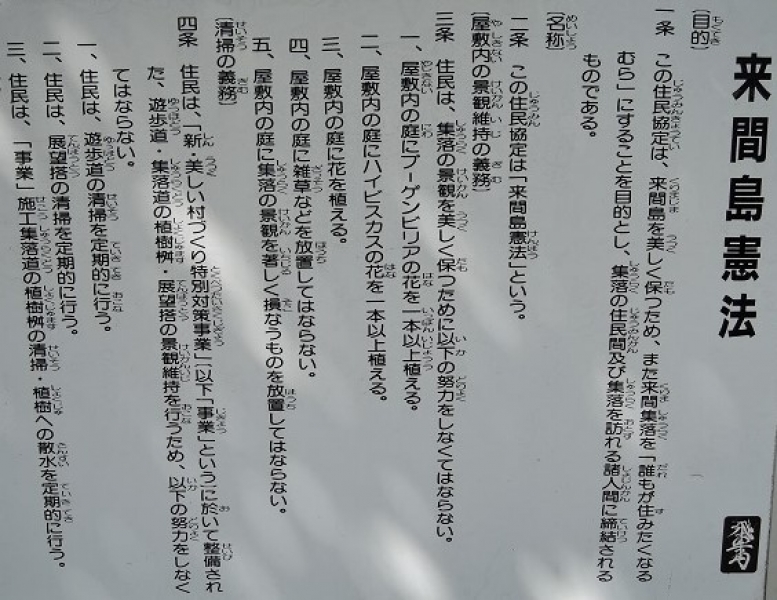 来間島憲法
(目的)
一条 この住民協定は、来間島を美しく保つため、また来間集落を「誰もが住みたくなる
むら」にすることを目的とし、集落の住民間及び集落を訪れる諸人間に締結される
ものである。
(名称)
二条 この住民協定は「来間島憲法」という。
(屋敷内の景観維持の義務)
三条 住民は、集落の景観を美しく保つために以下の努力をしなくてはならない。
一、屋敷内の庭にブーゲンビリアの花を一本以上植える。
二、屋敷内の庭にハイビスカスの花を一本以上植える。
三、屋敷内の庭に花を植える。
四、屋敷内の庭に雑草などを放置してはならない。
五、屋敷内の庭に集落の景観を著しく損なうものを放置してはならない。
(清掃の義務)
四条 住民は、「新・美しい村づくり特別対策事業」(以下「事業」という)に於いて整備され
た、遊歩道・集落道の植樹桝・展望搭の景観維持を行うため、以下の努力をしなく
てはならない。
一、住民は、遊歩道の清掃を定期的に行う。
二、住民は、展望搭の清掃を定期的に行う。
三、住民は、「事業」施工集落道の植樹桝の清掃・植樹への散水を定期的に行う。